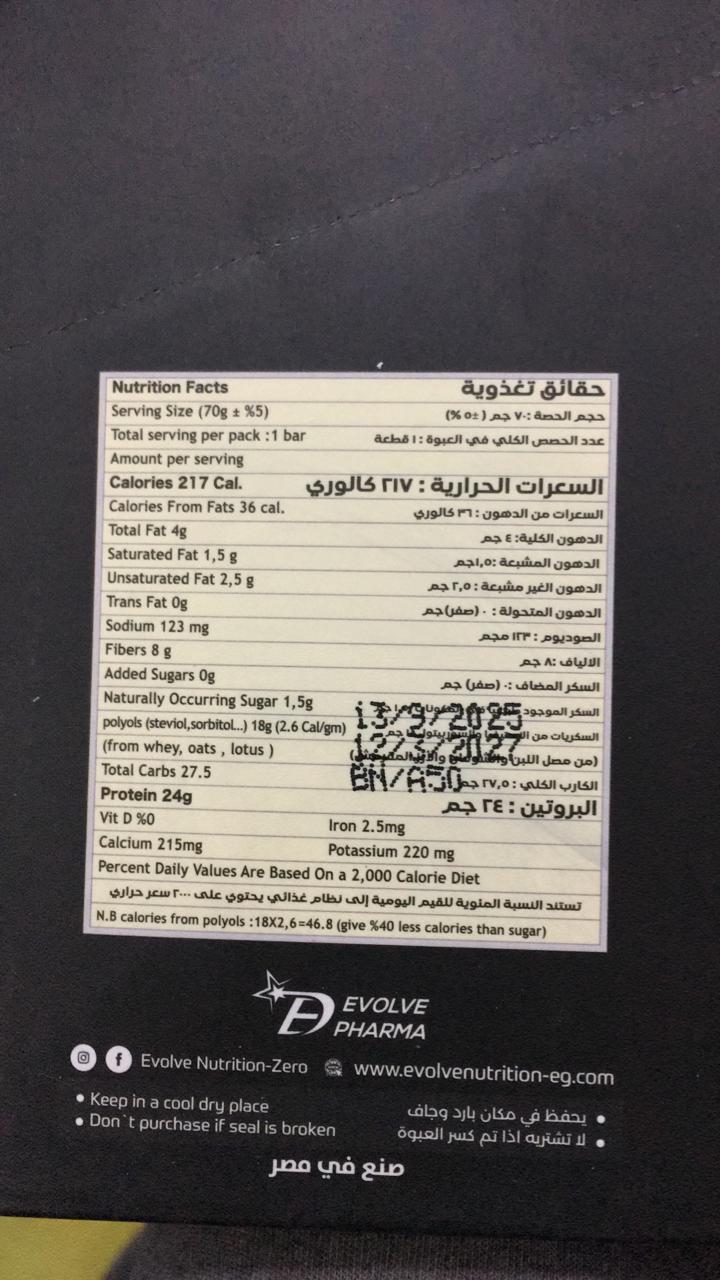 Nutrition Facts حقائق تغذوية
Serving Size (70g ± %5) حجم الحصة :٧٠ جم (±٥ %)
Total serving per pack :1 bar عدد الحصص الكلي في العبوة : ١ قطعة
Amount per serving
Calories 217 Cal. السعرات الحرارية : ٢١٧ كالوري
Calories From Fats 36 cal. السعرات من الدهون : ٣٦ كالوري
Total Fat 4g الدهون الكلية: ٤ جم
Saturated Fat 1,5 g الدهون المشبعة :١,٥جم
Unsaturated Fat 2,5 g الدهون الغير مشبعة : ٢,٥ جم
Trans Fat 0g الدهون المتحولة : ٠ (صفر)جم
Sodium 123 mg الصوديوم : ١٢٣ مجم
Fibers 8 g الالياف :٨ جم
Added Sugars 0g السكر المضاف :٠ (صفر) جم
Naturally Occurring Sugar 1,5g السكر الموجود
13/9/2025
polyols (steviol,sorbitol...) 18g (2.6 Cal/gm) السكريات من
12/3/2027
(from whey, oats , lotus ) (من مصل اللبن
BN/A50
Total Carbs 27.5 الكارب الكلي : ٢٧,٥ جم
Protein 24g البروتين : ٢٤ جم
Vit D %0 Iron 2.5mg
Calcium 215mg Potassium 220 mg
Percent Daily Values Are Based On a 2,000 Calorie Diet
تستند النسبة المئوية للقيم اليومية إلى نظام غذائي يحتوي على ٢٠٠٠ سعر حراري
N.B calories from polyols :18X2,6=46.8 (give %40 less calories than sugar)
EVOLVE
PHARMA
Evolve Nutrition-Zero www.evolvenutrition-eg.com
• Keep in a cool dry place • يحفظ في مكان بارد وجاف
• Don`t purchase if seal is broken • لا تشتريه اذا تم كسر العبوة
صنع في مصر